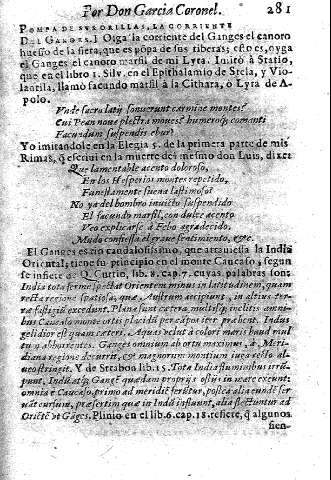 Por Don Garcia Coronel. 281
POMPA DE SVS ORILLAS, LA CORRIENTE
DEL GANGES.] Oiga la corriente del Ganges el canoro
huesso de la fiera, que es popa de sus riberas; esto es, oyga
el Ganges el canoro marfil de mi Lyra. Imitò à Statio,
que en el libro 1. Silv. en el Epithalamio de Stela, y Vio-
lantila, llamò facundo marfil à la Cithara, ò Lyra de A-
polo.
Vnde sacra latij sonuerunt carmine montes?
Cui Pean noue plectra moues? humeroq; comanti
Facundum suspendis ebur?
Yo imitandole en la Elegia 5. de la primera parte de mis
Rimas, q̃ escriui en la muerte del mesmo don Luis, dixe
Que lamentable acento doloroso,
En los Hesperios montes repetido,
Funestamente suena lastimoso?
No ya del hombro inuicto suspendido
El facundo marfil, con dulce acento
Veo explicarse à Febo agradecido,
Mudo confiessa el graue sentimiento, &c.
El Ganges es rio caudalosissimo, que atrauiessa la India
Oriental; tiene su principio en el monte Caucaso, segun
se infiere de Q. Curtio, lib. 8. cap. 7. cuyas palabras son:
India tota ferme spectat Orientem minus in latitudinem, quam
recta regione spatiosa, quæ Austrum accipiunt, in altius ter-
ræ fastigium excedunt. Plana sunt cætera, multisq; inclitis amni-
bus Caucaso monte ortis placidũ per cãpos iter præbent. Indus
gelidior est quam cæteri, Aquas vehit à colore maris haud mul-
tu abhorrentes. Ganges omnium ab ortu maximus, à Meri-
diana regione decurrit, & magnorum montium iuga recto al-
ueo stringit. Y de Strabon lib. 15. Tota India fluminibus irri-
punt, Indũ atq; Gangẽ quædam proprijs ostijs in mare exeunt;
omnia è Caucaso, primo ad meridiẽ feruntur, postea alia eundẽ ser-
uãt cursum, præsertim quæ in Indũ influunt, alia flectuntur ad
Oriẽtẽ vt Gãges. Plinio en el lib. 6. cap. 18. refiere, q̃ algunos
sien-